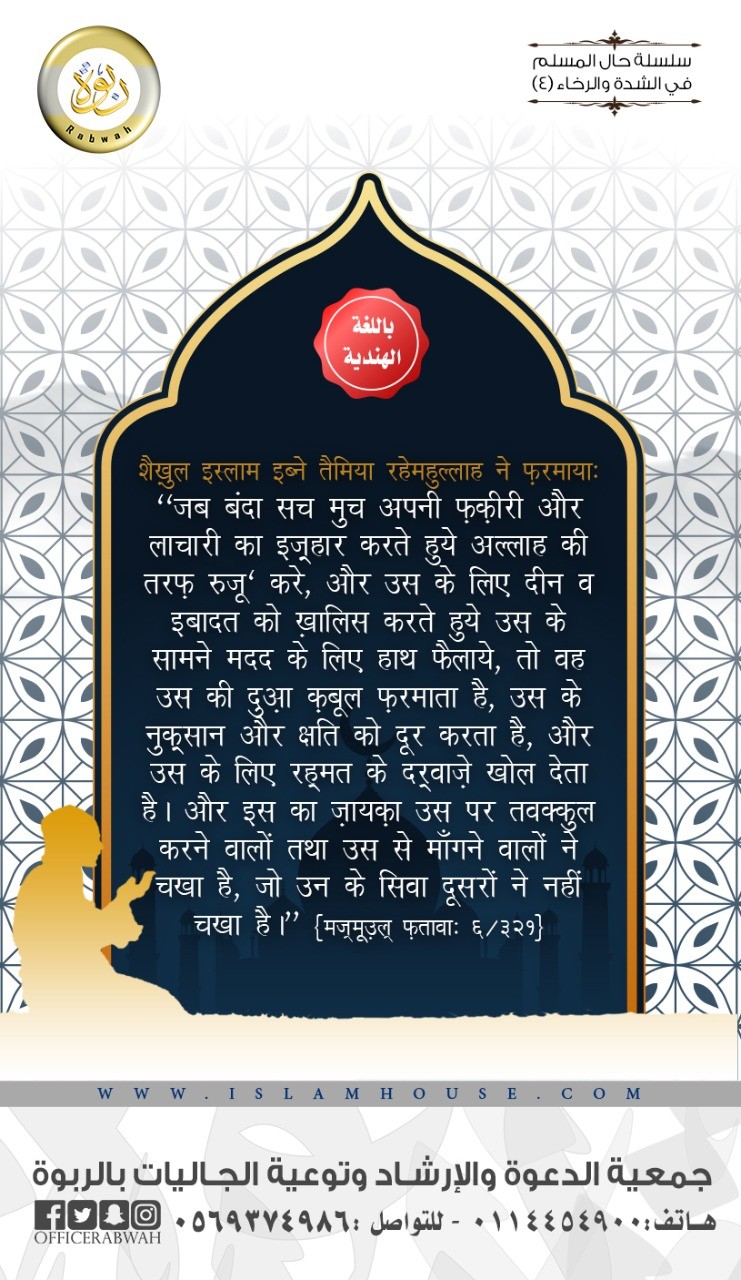 سلسلة حال المسلم
في الشدة والرخاء (٤)
ربوة
Rabwah
باللغة
الهندية
शैख़ुल इस्लाम इब्ने तैमिया रहेमहुल्लाह ने फ़रमायाः
‘‘जब बंदा सच मुच अपनी फ़क़ीरी और
लाचारी का इज़्हार करते हुये अल्लाह की
तरफ़ रुजू‘ करे, और उस के लिए दीन व
इबादत को ख़ालिस करते हुये उस के
सामने मदद के लिए हाथ फैलाये, तो वह
उस की दुआ़ क़बूल फ़रमाता है, उस के
नुक़्सान और क्षति को दूर करता है, और
उस के लिए रह़्मत के दर्वाज़े खोल देता
है। और इस का ज़ायक़ा उस पर तवक्कुल
करने वालों तथा उस से माँगने वालों ने
चखा है, जो उन के सिवा दूसरों ने नहीं
चखा है।’’ {मज्मूउ़ल् फ़तावाः ६/३२१}
WWW.ISLAMHOUSE.COM
جمعية الدعوة والإرشاد وتوعية الجاليات بالربوة
هاتف: ٠١١٤٤٥٤٩٠٠ - للتواصل: ٠٥٦٩٣٧٤٩٨٦
OFFICERABWAH